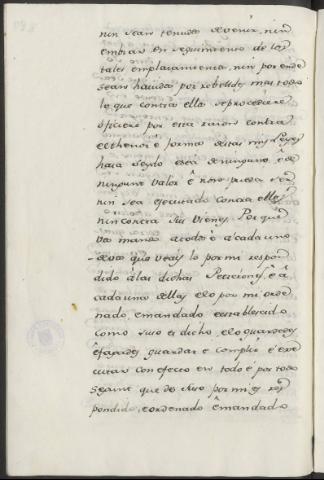 nin sean tenudos de venir, nin
embiar en seguimiento de los
tales emplazamientos, nin por ende
sean havidos por rebeldes mas todo
lo que contra ellos se procediere
o ficiere por esta razon contra
el thenor é forma destas mis Leyes
haia seydo e sea de ninguno, é de
ningunt valor é non pueda ser
nin sea ejecutado contra ellos
nin contra sus vienes. Por que
vos mando a todos é a cada uno
de vos que veays lo por mi respon
dido á las dichas Peticiones, é á
cada una dellas e lo por mi orde
nado, é mandado e establescido
como suso es dicho, e lo guardedes
é fagades guardar é complir é exe
cutar con efecto en todo é por todo
segunt que de suso por mi es res
pondido, e ordenado é mandado